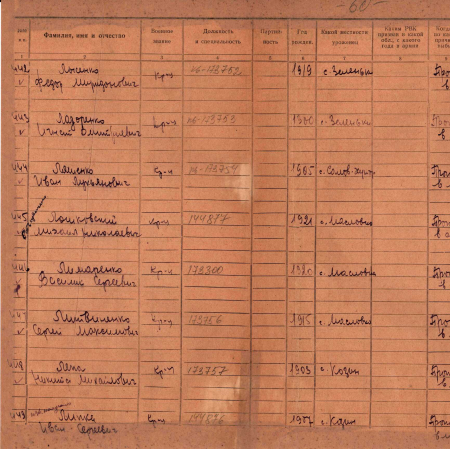 -60-
Фамилия, имя и отчество
Военное звание
Должность и специальность
Партий-ность
Год рожден.
Какой местности уроженец
Каким РВК призван и какой обл., с какого года в армии
1 2 3 4 5 6 7 8
442 Лысенко Федор Кр-ц 06-173752 1919 с. Зеленьки
443 Лазоренко Игнат Дмитриевич Кр-ц 06-173753 1900 с. Зеленьки
444 Ляшенко Иван Лукьянович Кр-ц 06-173754 1905
445 Лошковский Михаил Николаевич Кр-ц 144817 1921 с. Масловка
446 Лимаренко Василий Сергеевич Кр-ц 173300 1920 с. Масловка
447 Литвиненко Сергей Максимович Кр-ц 173756 1915 с. Масловка
448 Лепа Никита Михайлович Кр-ц 173757 1903 с. Козин
449 Липко Иван Сергеевич Кр-ц 1907